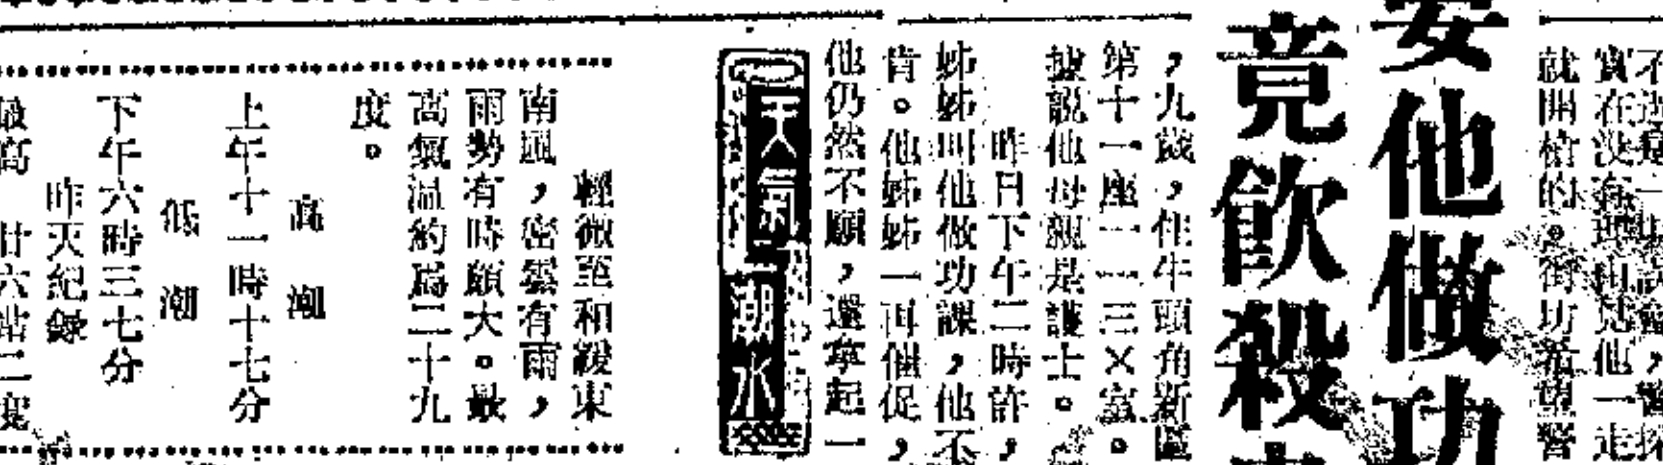 實在沒有理由見他一走
就開槍的。街坊希望警
他做功
竟飲殺
，九歲，住牛頭角新區
第十一座一一三×室。
據說他母親是護士。
昨日下午二時許，
姊姊叫他做功課，他不
肯。他姊姊一再催促，
他仍然不願，還拿起一
天氣潮水
輕微至和緩東
南風，密雲有雨，
雨勢有時頗大。最
高氣溫約爲二十九
度。
高潮
上午十一時十七分
低潮
下午六時三七分
昨天紀錄
最高　廿六點二度